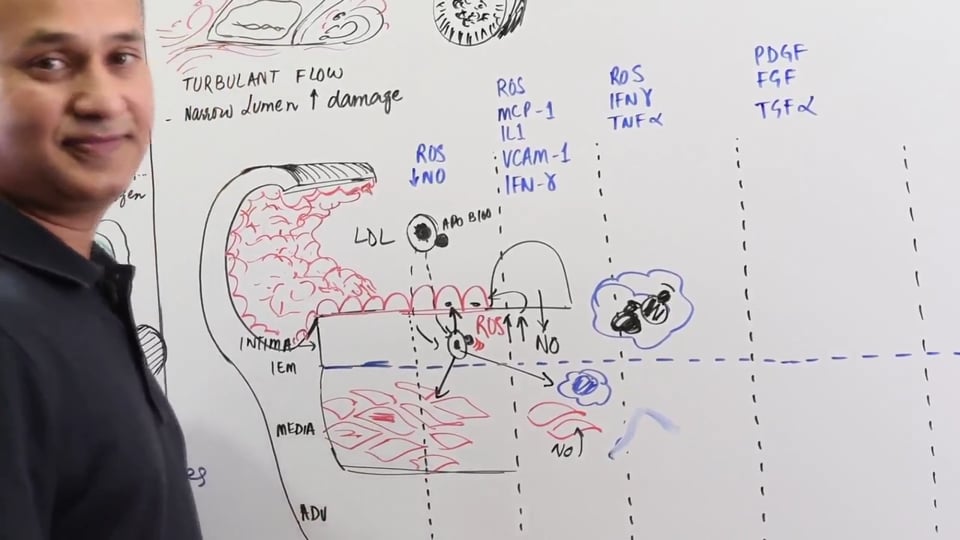 TURBULANT FLOW
- Narrow Lumen ↑ damage
ROS
↓NO
ROS
MCP-1
IL1
VCAM-1
IFN-γ
ROS
IFNγ
TNFα
PDGF
FGF
TGFα
LDL
APO B100
ROS
NO
INTIMA
IEM
MEDIA
NO↑
ADV